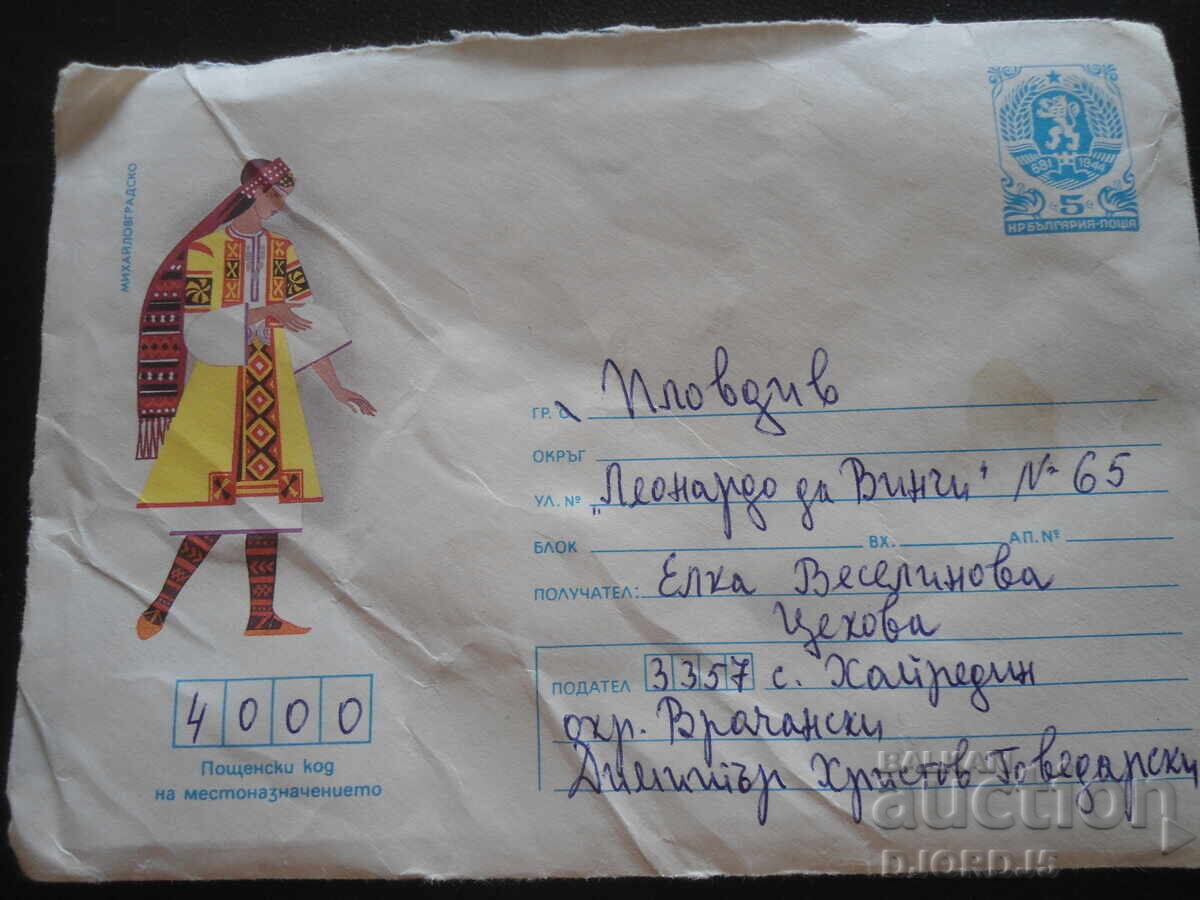 МИХАЙЛОВГРАДСКО
681 1944
5
НР БЪЛГАРИЯ-ПОЩА
ГР. С. Пловдив
ОКРЪГ
УЛ. № „Леонардо да Винчи“ № 65
БЛОК ВХ. АП. №
ПОЛУЧАТЕЛ: Елка Веселинова
Цехова
ПОДАТЕЛ 3357 с. Хайредин
окр. Врачански
Димитър Христов Говедарски
4000
Пощенски код
на местоназначението
BALKAN
auction
DJORDJ5